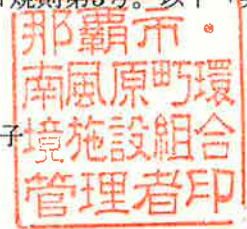 規則第3号。以下「
那覇市
南風原町環
子
境施設組合
管理者印